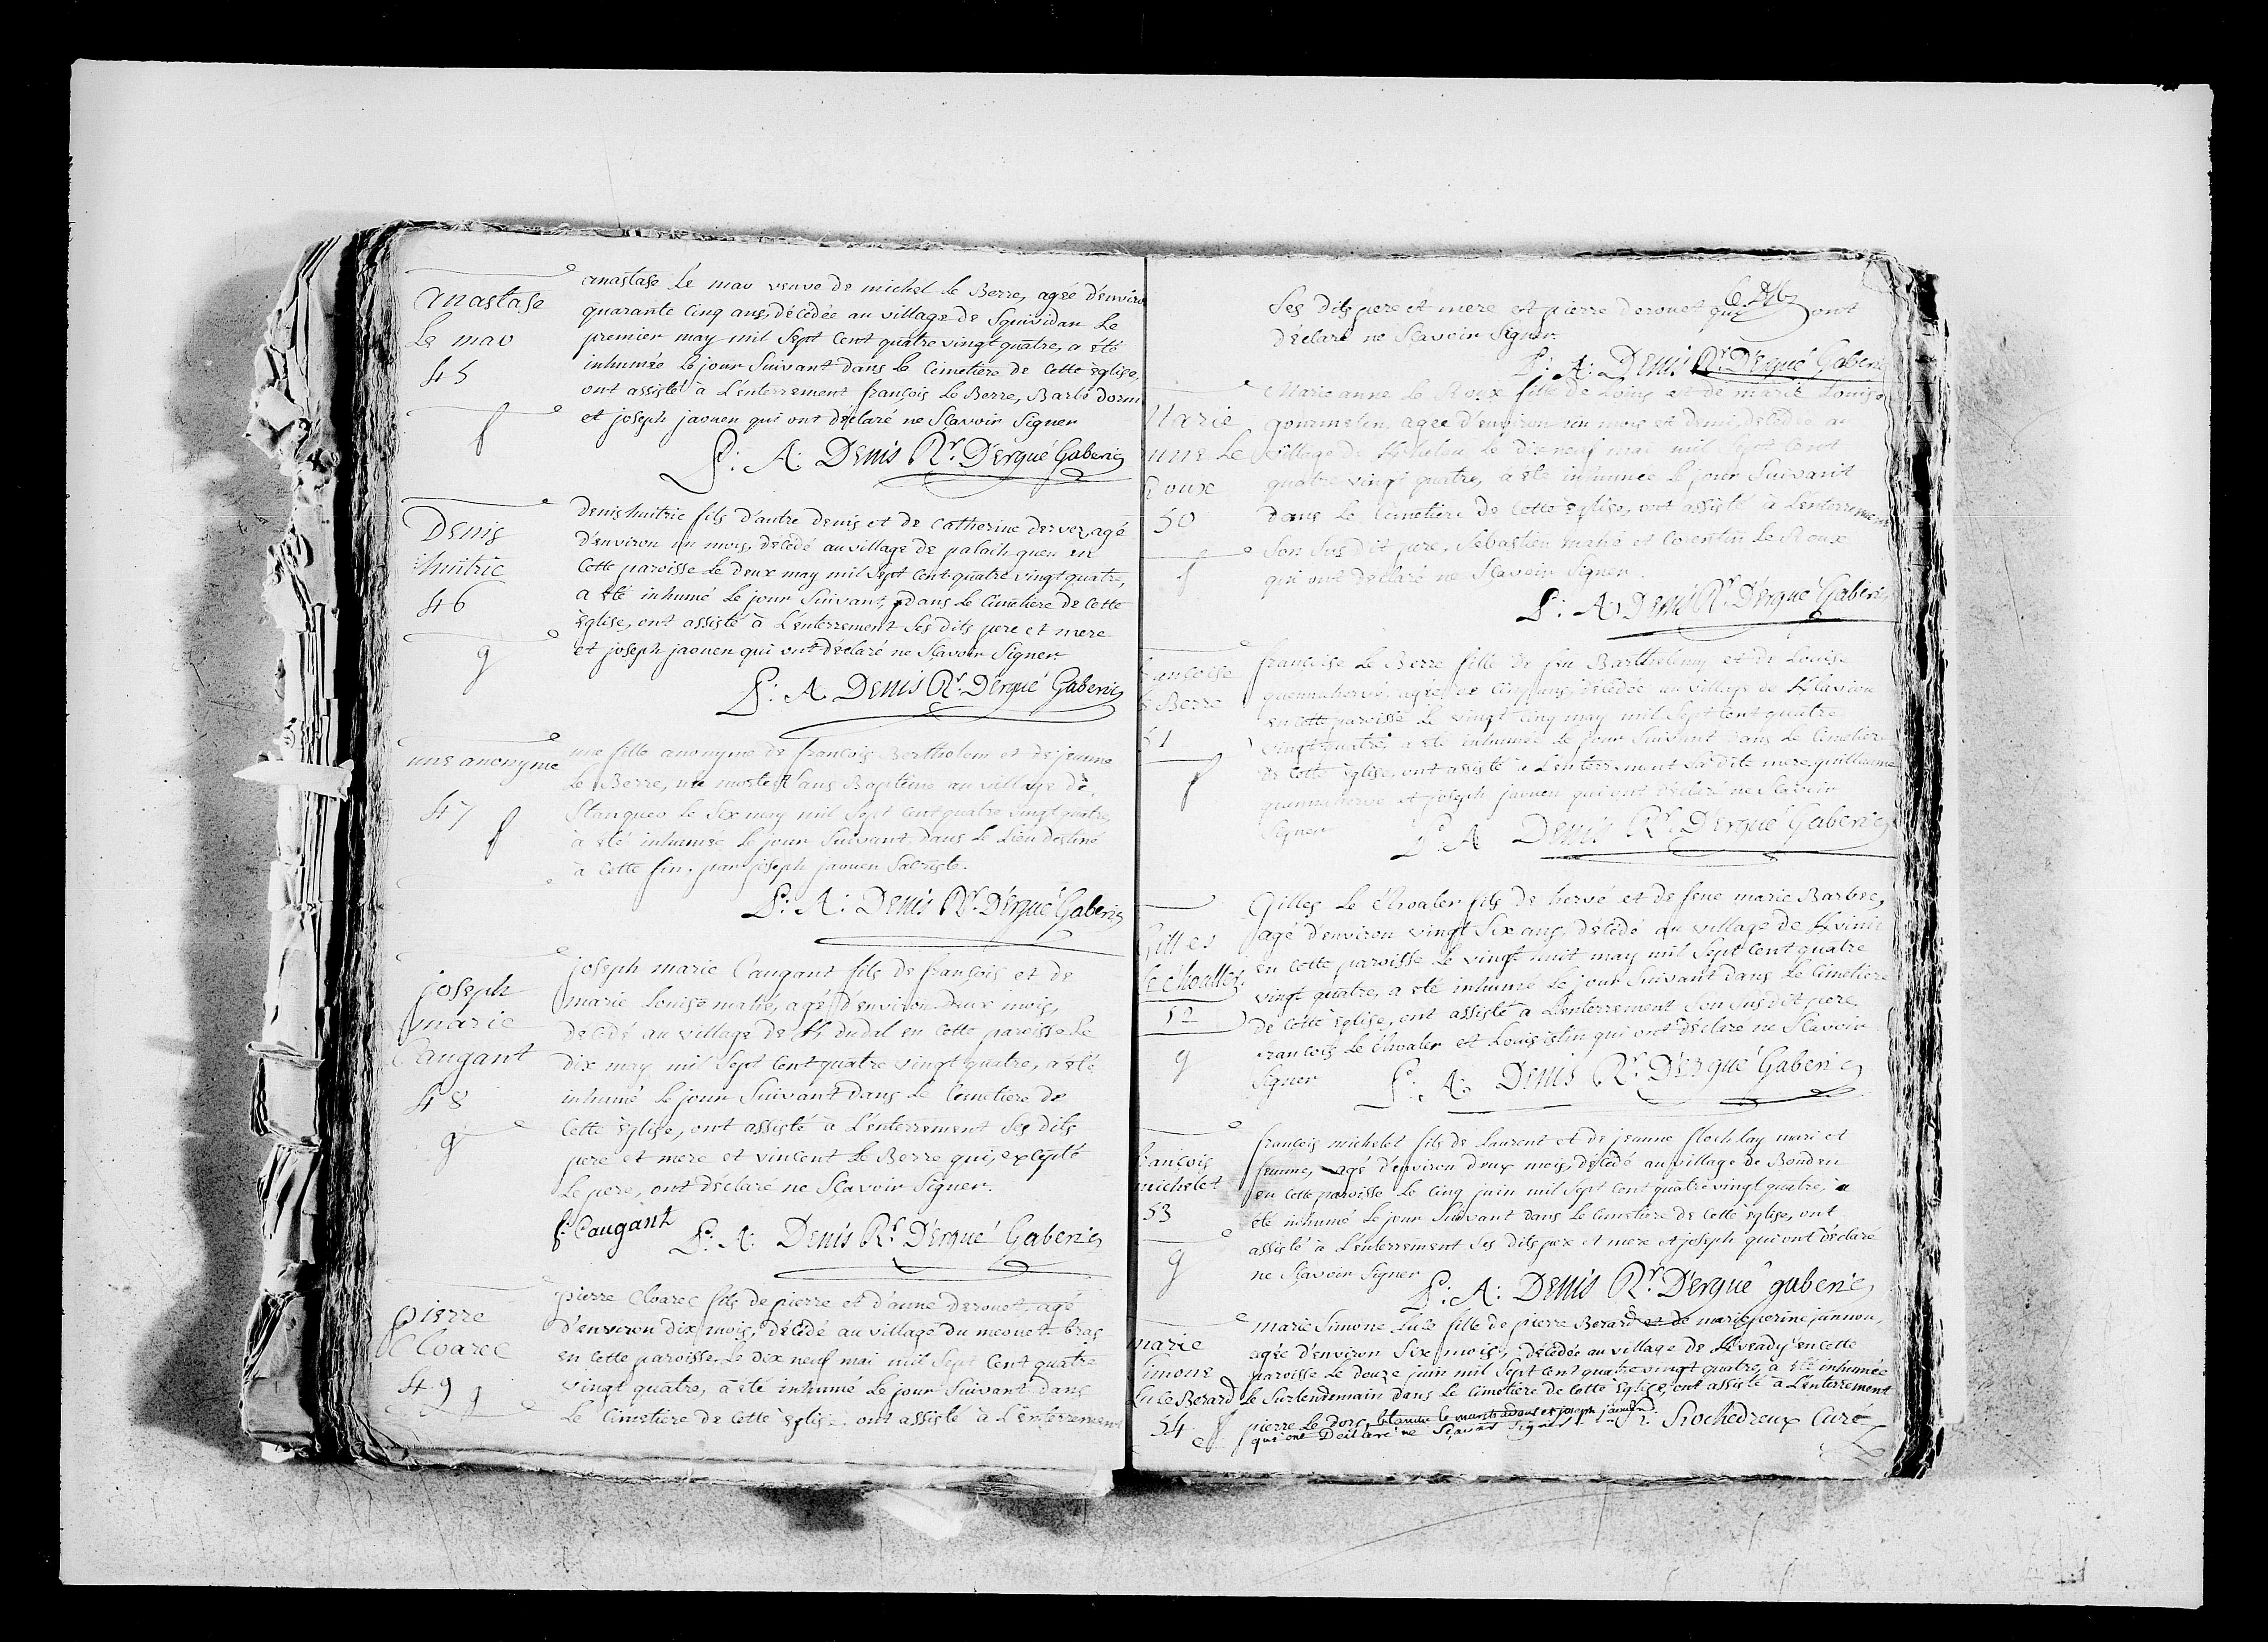 anastase
Le mao
45
f
anastase Le mao veuve de michel le Berre, agée d'environ
quarante cinq ans, décédée au village de Squividan Le
premier may mil Sept Cent quatre vingt quatre, a été
inhumée Le jour Suivant dans le Cimetiere de Cette Eglise,
ont assisté à L'enterrement françois Le Berre, Barbe dorm
et joseph jaouen qui ont déclaré ne Sçavoir Signer
A: Denis Rr. D'Ergué Gaberic
Denis
huitric
46
g
denis huitric fils d'autre denis et de Catherine dervez, agé
d'environ un mois, décédé au village de palach guen en
Cette paroisse Le deux may mil Sept Cent quatre vingt quatre,
a été inhumé Le jour Suivant, dans Le Cimetiere de Cette
Eglise, ont assisté à L'enterrement Ses dits pere et mere
et joseph jaouen qui ont déclaré ne Sçavoir Signer.
A. Denis Rr. D'ergué Gaberic
une anonyme
47
f
une fille anonyme de françois Bertholom et de jeanne
Le Berre, morte Sans Baptême au village de
Stanqueo le Six may mil Sept Cent quatre vingt quatre,
à été inhumée Le jour Suivant dans Le Lieu destiné
à Cette fin, par joseph jaouen Sacriste.
A: Denis Rr. D'ergué Gaberic
joseph
marie
Caugant
48
g
joseph marie Caugant fils de françois et de
marie Louise mahé, agé d'environ Deux mois,
decédé au village de K dudal en Cette paroisse Le
dix may mil Sept Cent quatre vingt quatre, a été
inhumé Le jour Suivant dans Le Cimetiere de
Cette Eglise, ont assisté à L'enterrement Ses dits
pere et mere et vincent Le Berre qui, excepté
Le pere, ont déclaré ne Sçavoir Signer.
f. Caugant A: Denis Rr. D'Ergué Gaberic
pierre
Cloarec
49 g
pierre Cloarec fils de pierre et d'anne Derouet, agé
d'environ dix mois, décédé au village du meouet bras
en Cette paroisse Le dix neuf mai mil Sept Cent quatre
vingt quatre, a été inhumé Le jour Suivant dans
Le Cimetiere de Cette Eglise, ont assisté à L'enterrement
Ses dits pere et mere et pierre derouet qui ont
déclaré ne Sçavoir Signer.
A: Denis Rr. D'Ergué Gaberic
Marie
anne Le
Roux
50
f
Marie anne Le Roux fille de Louis et de marie Louise
gourmelen, agée d'environ un mois et demi, décédée au
village de Le dix neuf mai mil Sept Cent
quatre vingt quatre, a été inhumée Le jour Suivant
dans Le Cimetiere de Cette Eglise, ont assisté à L'enterrement
Son Susdit pere, Sébastien mahé et Corentin Le Roux
qui ont déclaré ne Sçavoir Signer.
A: Denis Rr. D'ergué Gaberic
françoise
Le Berre
51
f
françoise Le Berre fille de feu Barthelemy et de Louise
quennehervé, agée de Cinq ans, décédée au village de K
en Cette paroisse Le vingt Cinq may mil Sept Cent quatre
vingt quatre, a été inhumée Le jour Suivant dans Le Cimetiere
de Cette Eglise, ont assisté à L'enterrement Sa dite mere, guillaume
quennehervé et joseph jaouen qui ont déclaré ne Sçavoir
Signer A Denis Rr. D'ergué Gaberic
Gilles
Le
52
g
Gilles Le fils de hervé et de feue marie Barbe,
agé d'environ vingt Six ans, décédé au village de
en Cette paroisse Le vingt huit may mil Sept Cent quatre
vingt quatre, a été inhumé Le jour Suivant dans Le Cimetiere
de Cette Eglise, ont assisté à L'enterrement Son Susdit pere
françois Le et Louis qui ont déclaré ne Sçavoir
Signer A: Denis Rr. D'Ergué Gaberic
françois
michelet
53
g
françois michelet fils de Laurent et de jeanne flochlay mari et
femme, agé d'environ deux mois, décédé au village de Bouden
en Cette paroisse Le Cinq juin mil Sept Cent quatre vingt quatre, a
été inhumé Le jour Suivant dans Le Cimetiere de Cette Eglise, ont
assisté à L'enterrement Ses dits pere et mere et joseph qui ont déclaré
ne Sçavoir Signer A: Denis Rr. D'ergué gaberic
marie
Simone
Luce Berard
54 f
marie Simone Luce fille de pierre Berard et de marie perine jannou,
agée d'environ Six mois, décédée au village de en Cette
paroisse Le douze juin mil Sept Cent quatre vingt quatre, a été inhumée
Le Surlendemain dans Le Cimetiere de Cette Eglise, ont assisté à L'enterrement
pierre Le Dore, et joseph jaouen
qui ont Declaré ne Sçavoir Signer Rochedreux Curé